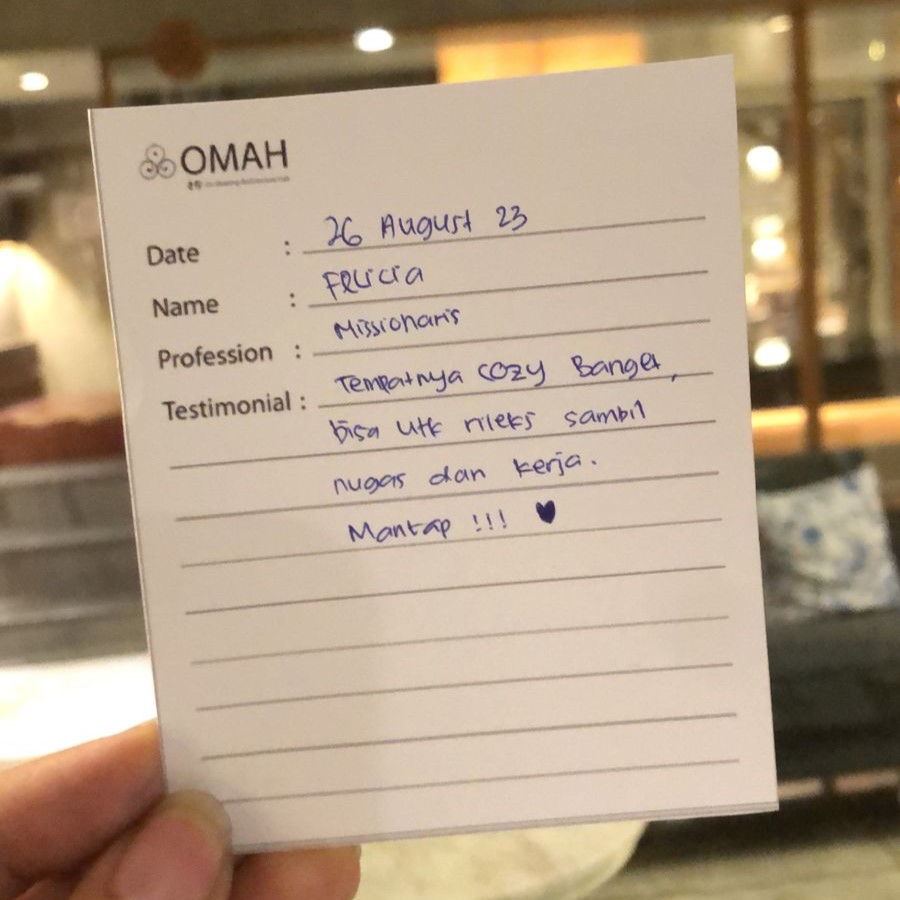 OMAH
Date : 26 August 23
Name : Felicia
Profession : Missionaris
Testimonial : Tempatnya cozy Banget,
bisa utk rileks sambil
nugas dan kerja.
Mantap !!! ♥